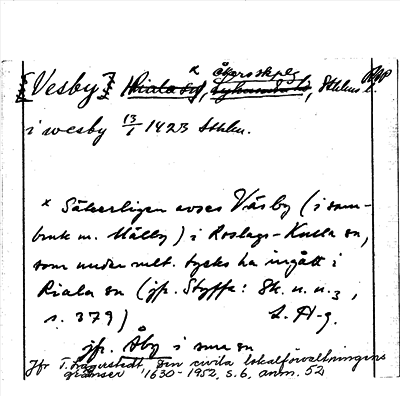 åkersskplg
[Vesby] Riala sn, Lyhundra hd, Sthlms l.
i wesby 13/1 1423 Sthlm.
x Säkerligen avses Väsby (i sam-
bruk m. Mälby) i Roslags-Kulla sn,
som under mlt. tycks ha ingått i
Riala sn (jfr. Styffe: Sk. u. u.3,
s. 379) L. H-g.
jfr. Åby i smc sn
Jfr T. Lagerstedt, Den civila lokalförvaltningens
gränser 1630-1952, s. 6, anm. 52